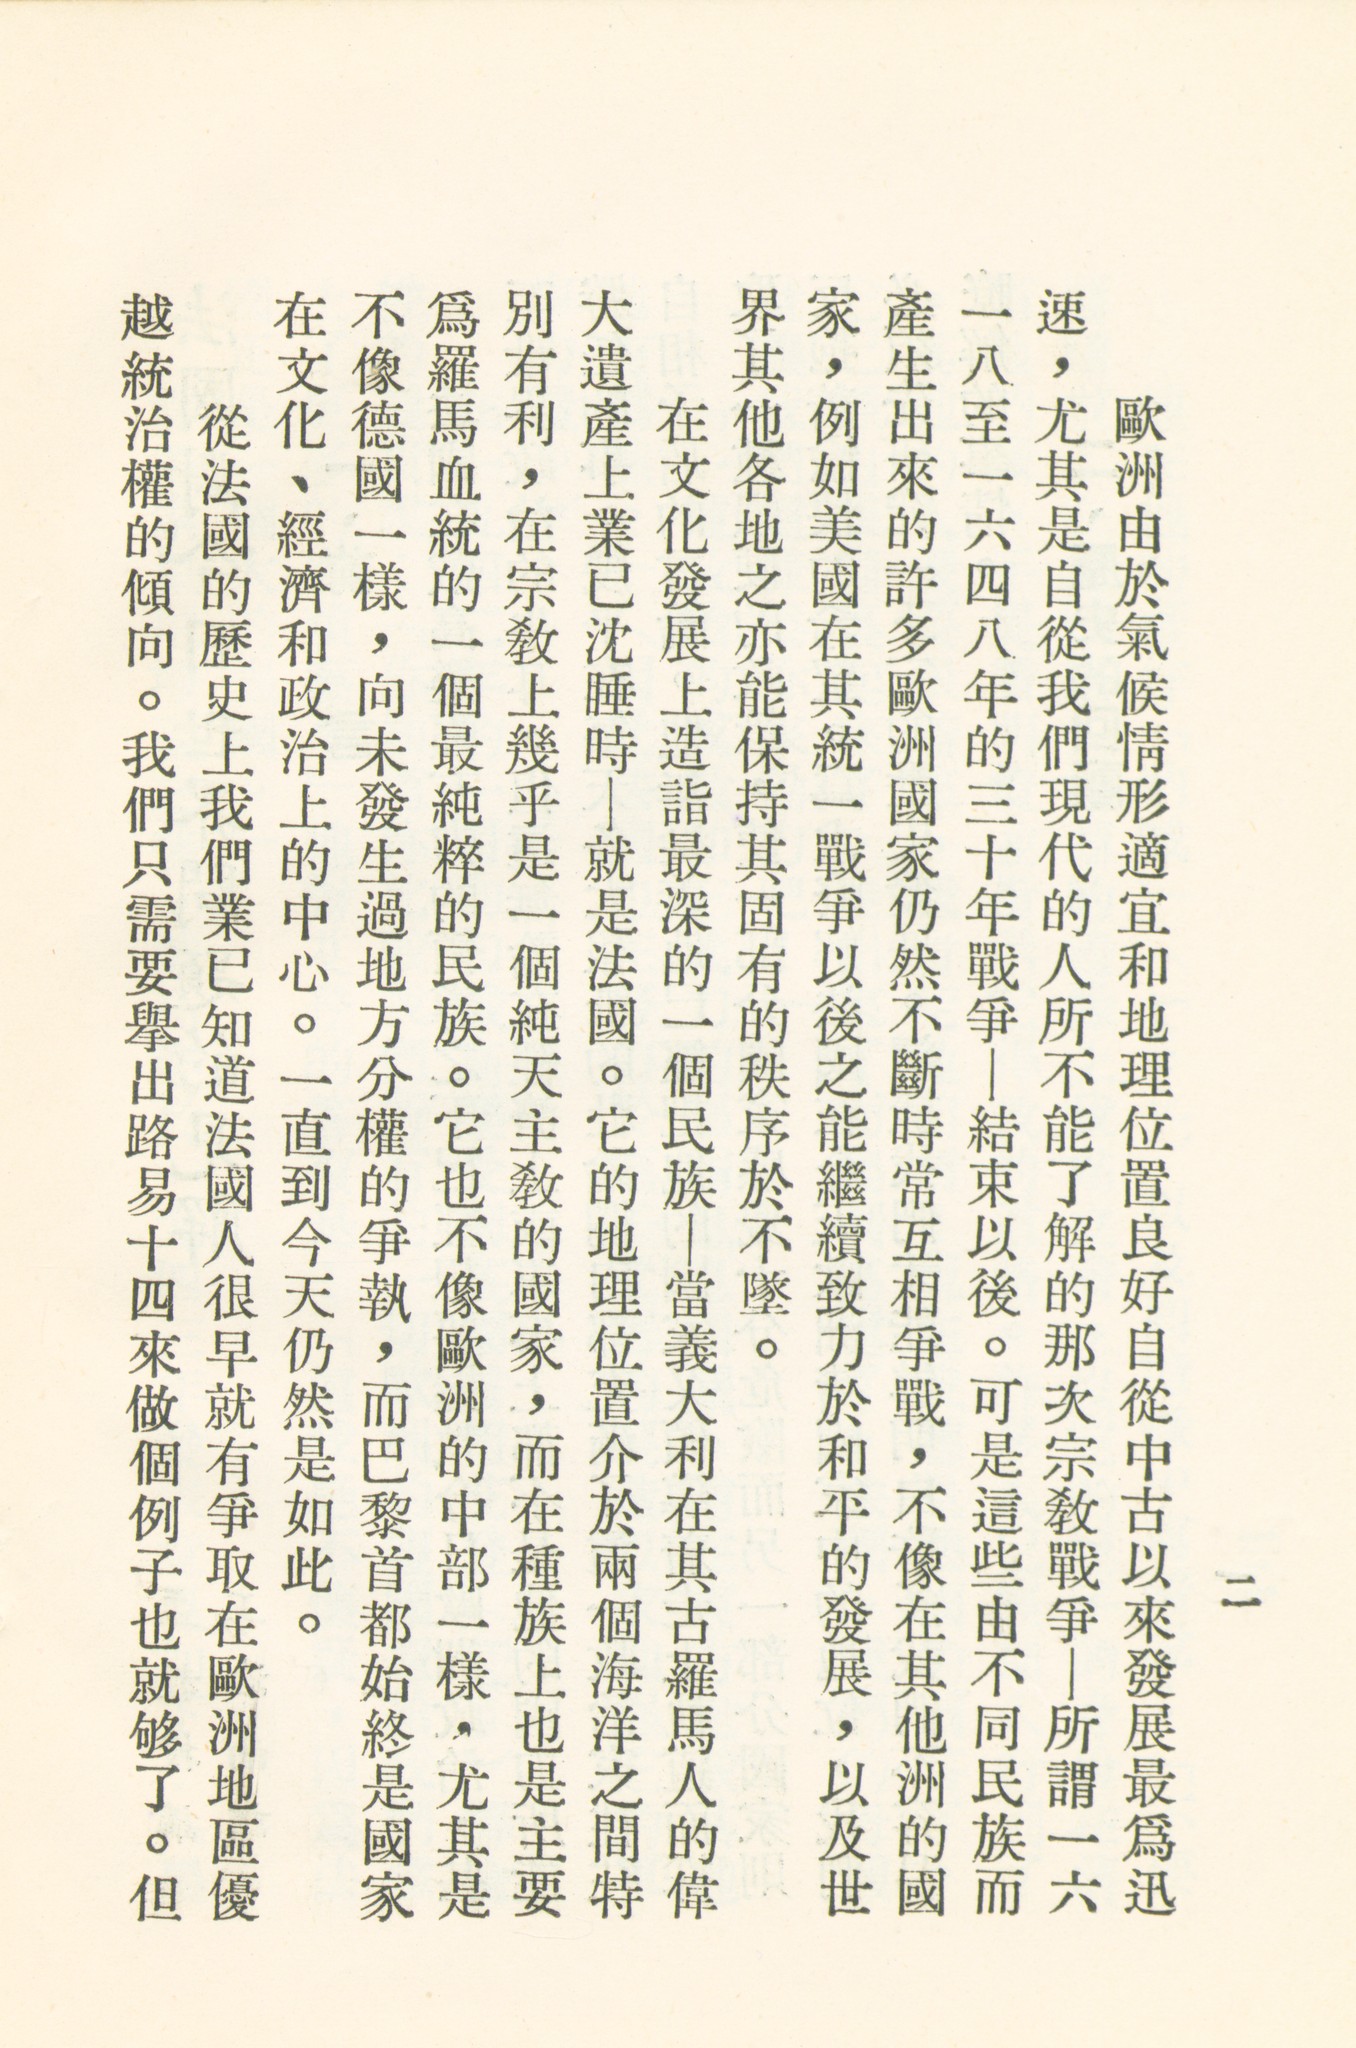 二
歐洲由於氣候情形適宜和地理位置良好自從中古以來發展最爲迅
速，尤其是自從我們現代的人所不能了解的那次宗教戰爭—所謂一六
一八至一六四八年的三十年戰爭—結束以後。可是這些由不同民族而
產生出來的許多歐洲國家仍然不斷時常互相爭戰，不像在其他洲的國
家，例如美國在其統一戰爭以後之能繼續致力於和平的發展，以及世
界其他各地之亦能保持其固有的秩序於不墜。
在文化發展上造詣最深的一個民族—當義大利在其古羅馬人的偉
大遺產上業已沈睡時—就是法國。它的地理位置介於兩個海洋之間特
別有利，在宗教上幾乎是一個純天主教的國家，而在種族上也是主要
爲羅馬血統的一個最純粹的民族。它也不像歐洲的中部一樣，尤其是
不像德國一樣，向未發生過地方分權的爭執，而巴黎首都始終是國家
在文化、經濟和政治上的中心。一直到今天仍然是如此。
從法國的歷史上我們業已知道法國人很早就有爭取在歐洲地區優
越統治權的傾向。我們只需要舉出路易十四來做個例子也就够了。但